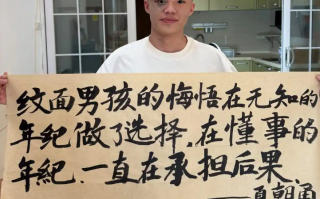 纹面男孩的悔悟在无知的
年纪做了选择,在懂事的
年紀、一直在承担后果、
——夏朝勇